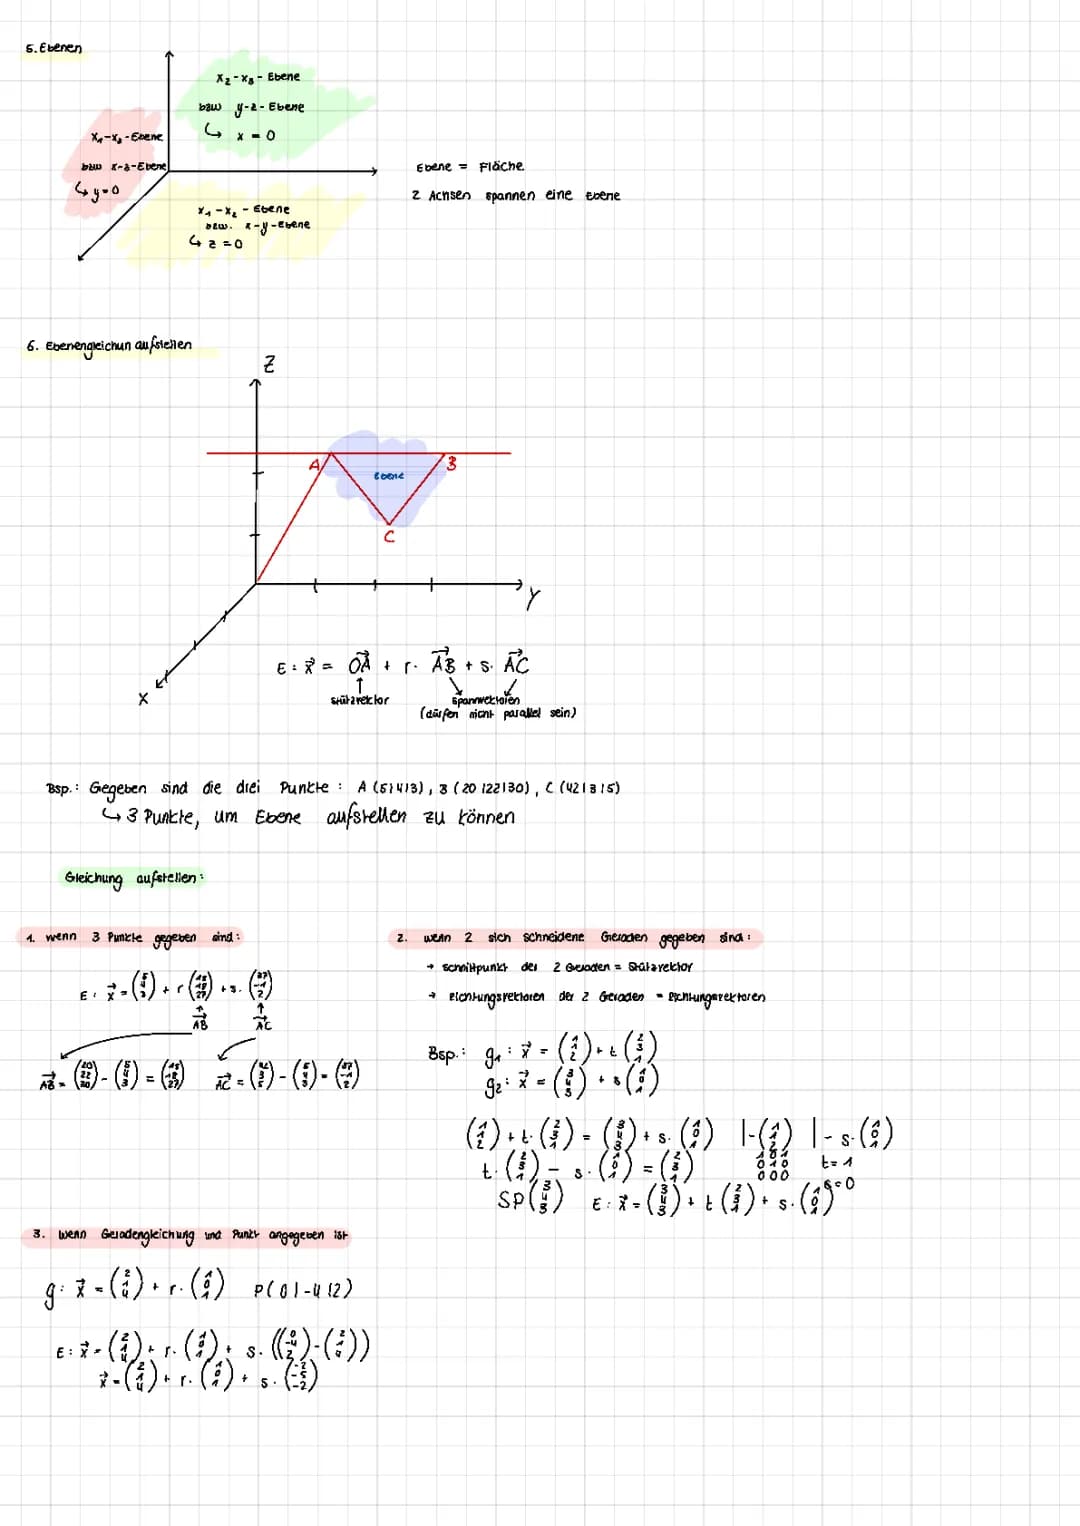 5. Ebenen
x₂-x₃ - Ebene
bzw y-z - Ebene
↳ x = 0
x₁-x₃ - Ebene
bzw x-z-Ebene
↳ y=0
x₁-x₂ - Ebene
bzw. x-y-Ebene
↳ z = 0
Ebene = Fläche
2 Achsen spannen eine Ebene
6. Ebenengleichun aufstellen
Z
A
B
Ebene
C
Y
X
E: x⃗ = OA⃗ + r· AB⃗ + s· AC⃗
↑
Stützvektor
Spannvektoren
(dürfen nicht parallel sein)
Bsp.: Gegeben sind die drei Punkte: A (5|4|3), B (20|22|30), C (42|3|5)
↳ 3 Punkte, um Ebene aufstellen zu können
Gleichung aufstellen:
1. wenn 3 Punkte gegeben sind:
E: x⃗ = (5 4 3) + r (15 18 27) + s· (37 -1 2)
AB⃗ AC⃗
AB⃗ = (20 22 30) - (5 4 3) = (15 18 27) AC⃗ = (42 3 5) - (5 4 3) = (37 -1 2)
2. wenn 2 sich schneidene Geraden gegeben sind:
→ Schnittpunkt der 2 Geraden = Stützvektor
→ Richtungsvektoren der 2 Geraden = Richtungsvektoren
Bsp.: g₁: x⃗ = (1 1 2) + t (2 3 1)
g₂: x⃗ = (3 4 3) + s (1 0 1)
(1 1 2) + t· (2 3 1) = (3 4 3) + s· (1 0 1) |-(1 1 2) |- s·(1 0 1)
t· (2 3 1) - s· (1 0 1) = (2 3 1)
t= 1
s=0
SP (3 4 3) E: x⃗ = (3 4 3) + t (2 3 1) + s· (1 0 1)
3. wenn Geradengleichung und Punkt angegeben ist
g: x⃗ = (2 1 4) + r· (1 0 1) P(0|-4|2)
E: x⃗ = (2 1 4) + r· (1 0 1) + s· ((0 -4 2)-(2 1 4))
x⃗ = (2 1 4) + r· (1 0 1) + s· (-2 -5 -2)